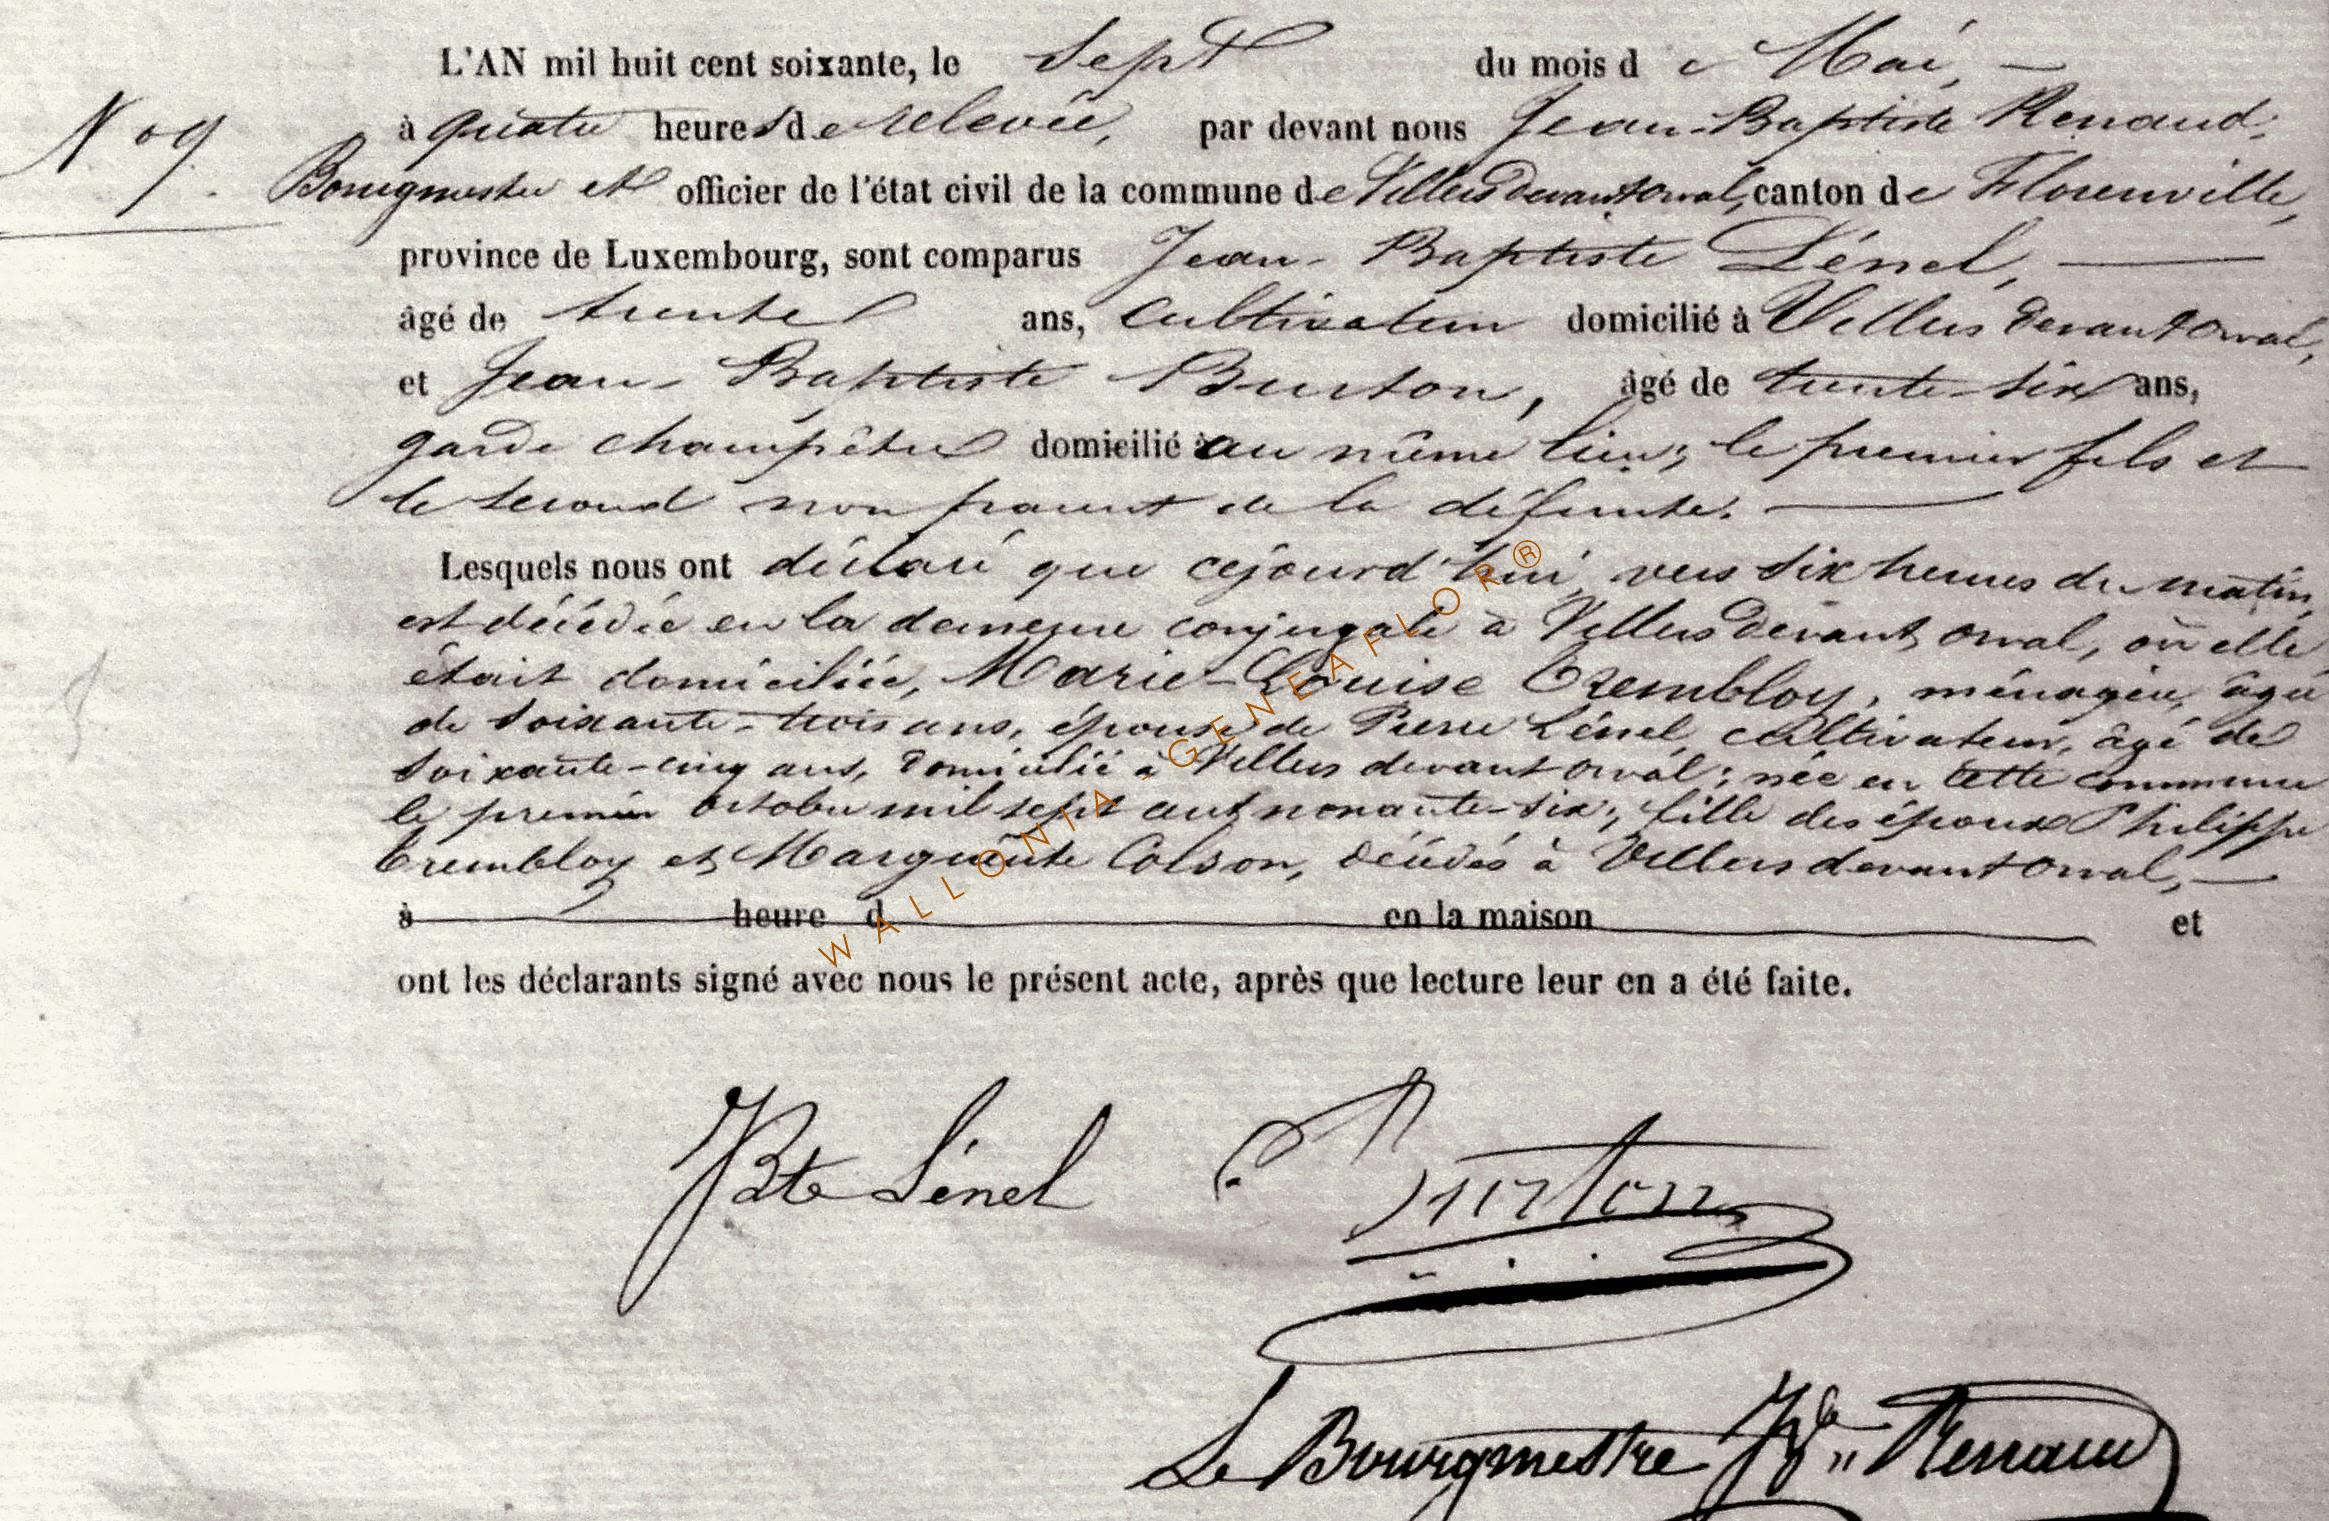 L'AN mil huit cent soixante, le Sept du mois de Mai,
N° 9.
à quatre heures de relevée, par devant nous Jean-Baptiste Renaud,
Bourgmestre et officier de l'état civil de la commune de Villers devant Orval, canton de Florenville,
province de Luxembourg, sont comparus Jean-Baptiste Lénel,
âgé de trente ans, cultivateur domicilié à Villers devant Orval,
et Jean-Baptiste Burton, âgé de trente-six ans,
garde champêtre domicilié au même lieu; le premier fils et
le second non parent de la défunte.
Lesquels nous ont déclaré que cejourd'hui, vers six heures du matin,
est décédée en la demeure conjugale à Villers devant Orval, où elle
était domiciliée, Marie-Louise Trembloy, ménagère, âgée
de soixante-trois ans, épouse de Pierre Lénel, cultivateur, âgé de
soixante-cinq ans, domicilié à Villers devant Orval; née en cette commune
le premier octobre mil sept cent nonante-six; fille des époux Philippe
Trembloy et Marguerite Colson, décédés à Villers devant Orval,
à heure d en la maison et
ont les déclarants signé avec nous le présent acte, après que lecture leur en a été faite.
JBte Lénel Burton
Le Bourgmestre JBte Renaud
WALLONIA-GENEAFLOR®